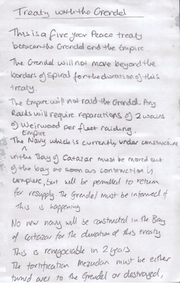 Treaty with the Grendel
This is a five year Peace treaty
between the Grendel and the Empire
The Grendel will not move beyond the
borders of Spiral for the duration of this
treaty.
The Empire will not raid the Grendel. Any
Raids will require reparations of 2 wains
of weirwood per fleet raiding.
Empire
The Navy which is currently under construction
in the Bay of Catazar must be moved out
of the bay as soon as construction is
complete, but will be permitted to return
for resupply. The Grendel must be informed if
this is happening
No new navy will be constructed in the Bay
of Catazar for the duration of this treaty
This is renegociable in 2 years
The fortification Mezudan must be either
turned over to the Grendel or destroyed,